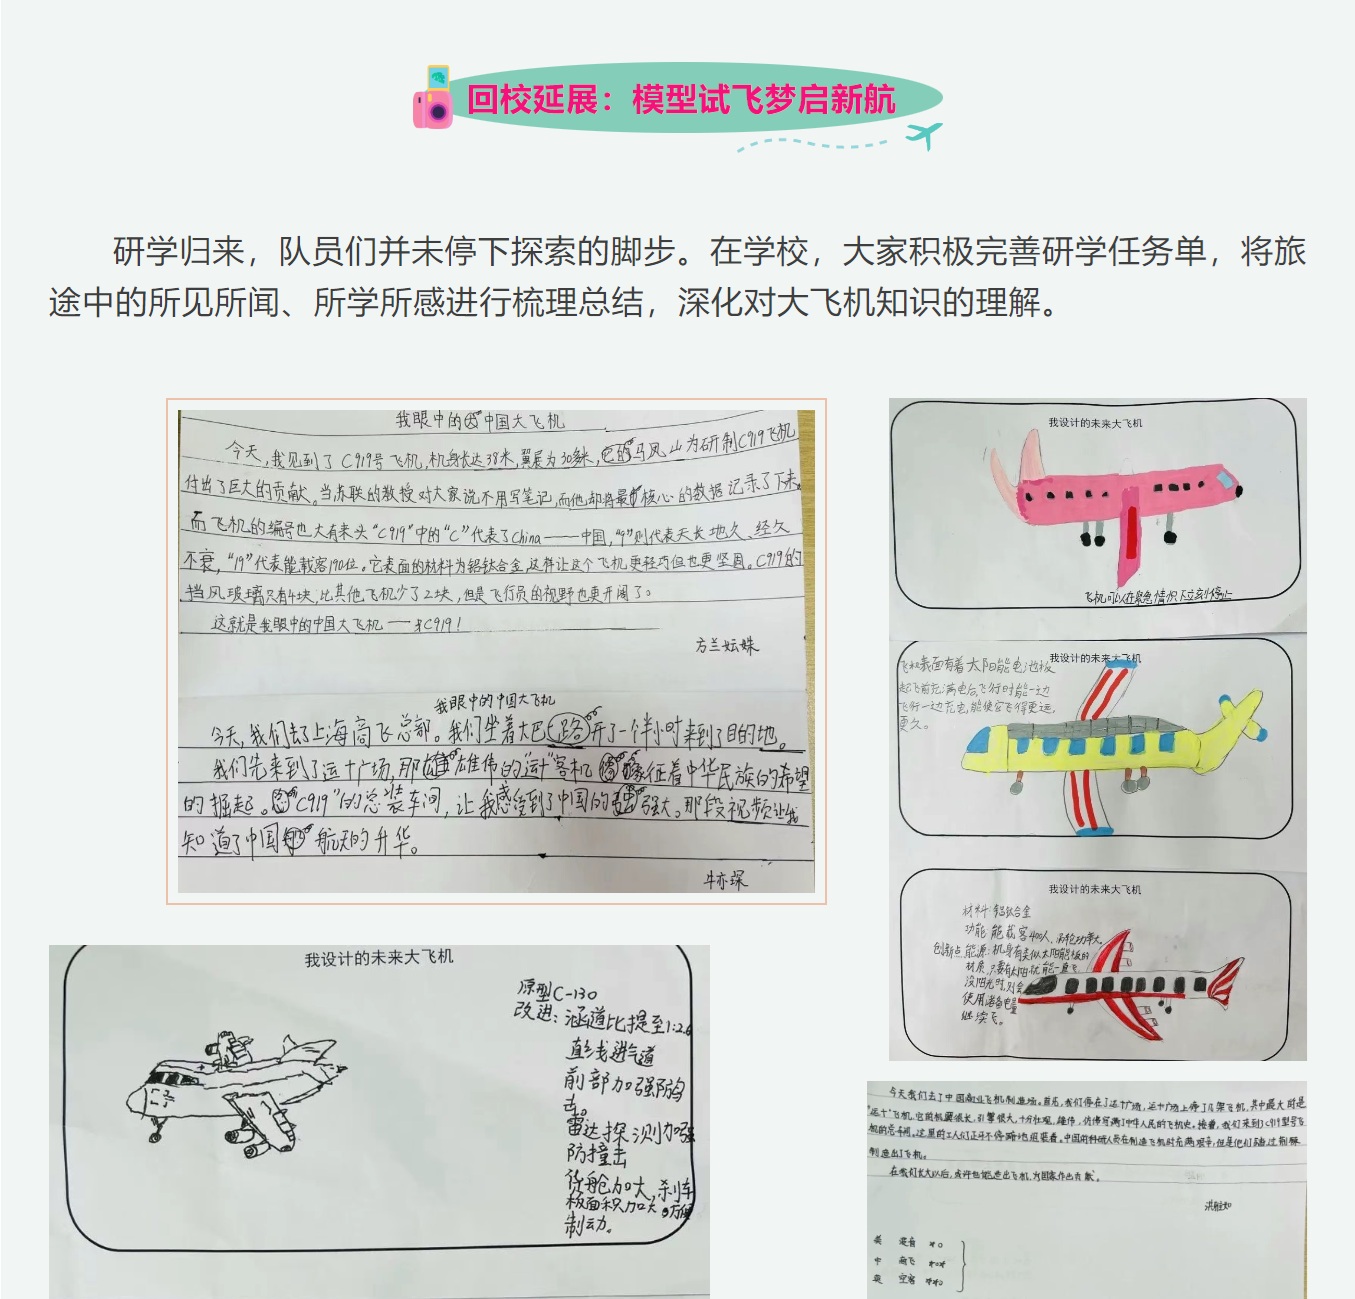 回校延展：模型试飞梦启新航
研学归来，队员们并未停下探索的脚步。在学校，大家积极完善研学任务单，将旅
途中的所见所闻、所学所感进行梳理总结，深化对大飞机知识的理解。
我眼中的中国大飞机
今天，我见到了C919号飞机，机身长达38米，翼展为30多米，马凤山为研制C919飞机
付出了巨大的贡献。当苏联的教授对大家说不用写笔记，而他却将最核心的数据记录了下来。
而飞机的编号也大有来头“C919”中的“C”代表了China——中国，“9”则代表天长地久、经久
不衰，“19”代表能载客190位。它表面的材料为铝钛合金，这样让这个飞机更轻巧但也更坚固。C919的
挡风玻璃只有4块，比其他飞机少了2块，但是飞行员的视野也更开阔了。
这就是我眼中的中国大飞机——C919！
方兰妘姝
我眼中的中国大飞机
今天，我们去了上海商飞总部。我们坐着大巴开了一个半小时来到了目的地。
我们先来到了运十广场，那雄伟的“运十”客机象征着中华民族的希望
的掘起。C919”的总装车间，让我感受到了中国的强大。那段视频让我
知道了中国航天的升华。
牛亦琛
我设计的未来大飞机
飞机可以在紧急情况下立刻停止
我设计的未来大飞机
飞机表面有着太阳能电池板
起飞前充满电后，飞行时能一边
飞行一边充电，能使它飞得更远，
更久。
我设计的未来大飞机
材料：铝钛合金
功能：能载客400人，涡轮功率大
创新点：能源：机身有类似太阳能板的
材质，只要有太阳就能一直飞，
没阳光时，则会
使用准备电量
继续飞。
我设计的未来大飞机
原型C-130
改进：涵道比提至1:2.6
直线进气道
前部加强防鸟
击。
雷达探测加强
防撞击
货舱加大，刹车
板面积加大。方便
制动。
今天我们去了中国商业飞机制造场。首先，我们停在了运十广场，运十广场上停了几架飞机，其中最大的是
“运十”飞机，它的机翼很长，引擎很大，十分壮观、雄伟，仿佛写满了中华人民的飞机史。接着，我们来到了C919型号飞
机的总车间，这里的工人们正在不停地组装着。中国的科研人员在制造飞机时充满艰辛，但是他们
制造出了飞机。
在我们长大以后，或许也能造出飞机，为国家作出贡献。
美 波音
中 商飞
空客